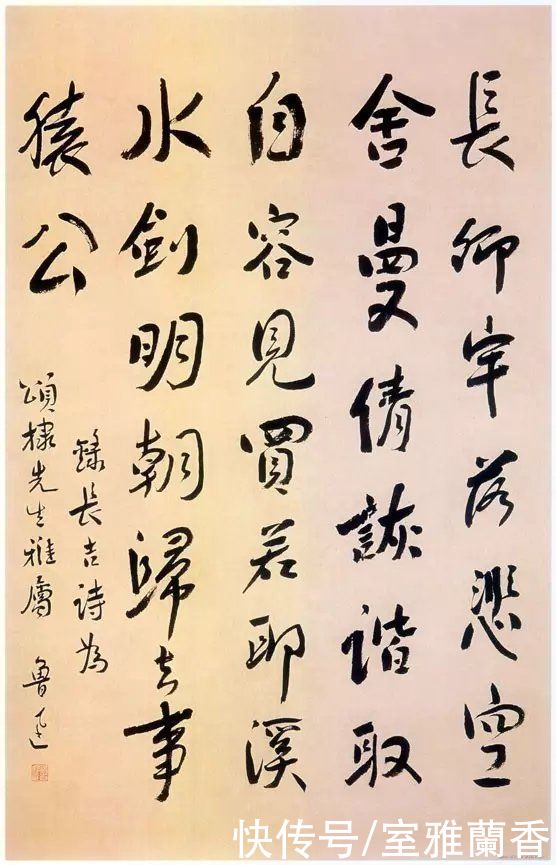 長卿牢落悲空
舍曼倩詼諧取
自容見買若耶溪
水劍明朝歸去事
猿公
錄長吉詩為
頌棣先生雅屬 魯迅
快传号/室雅蘭香